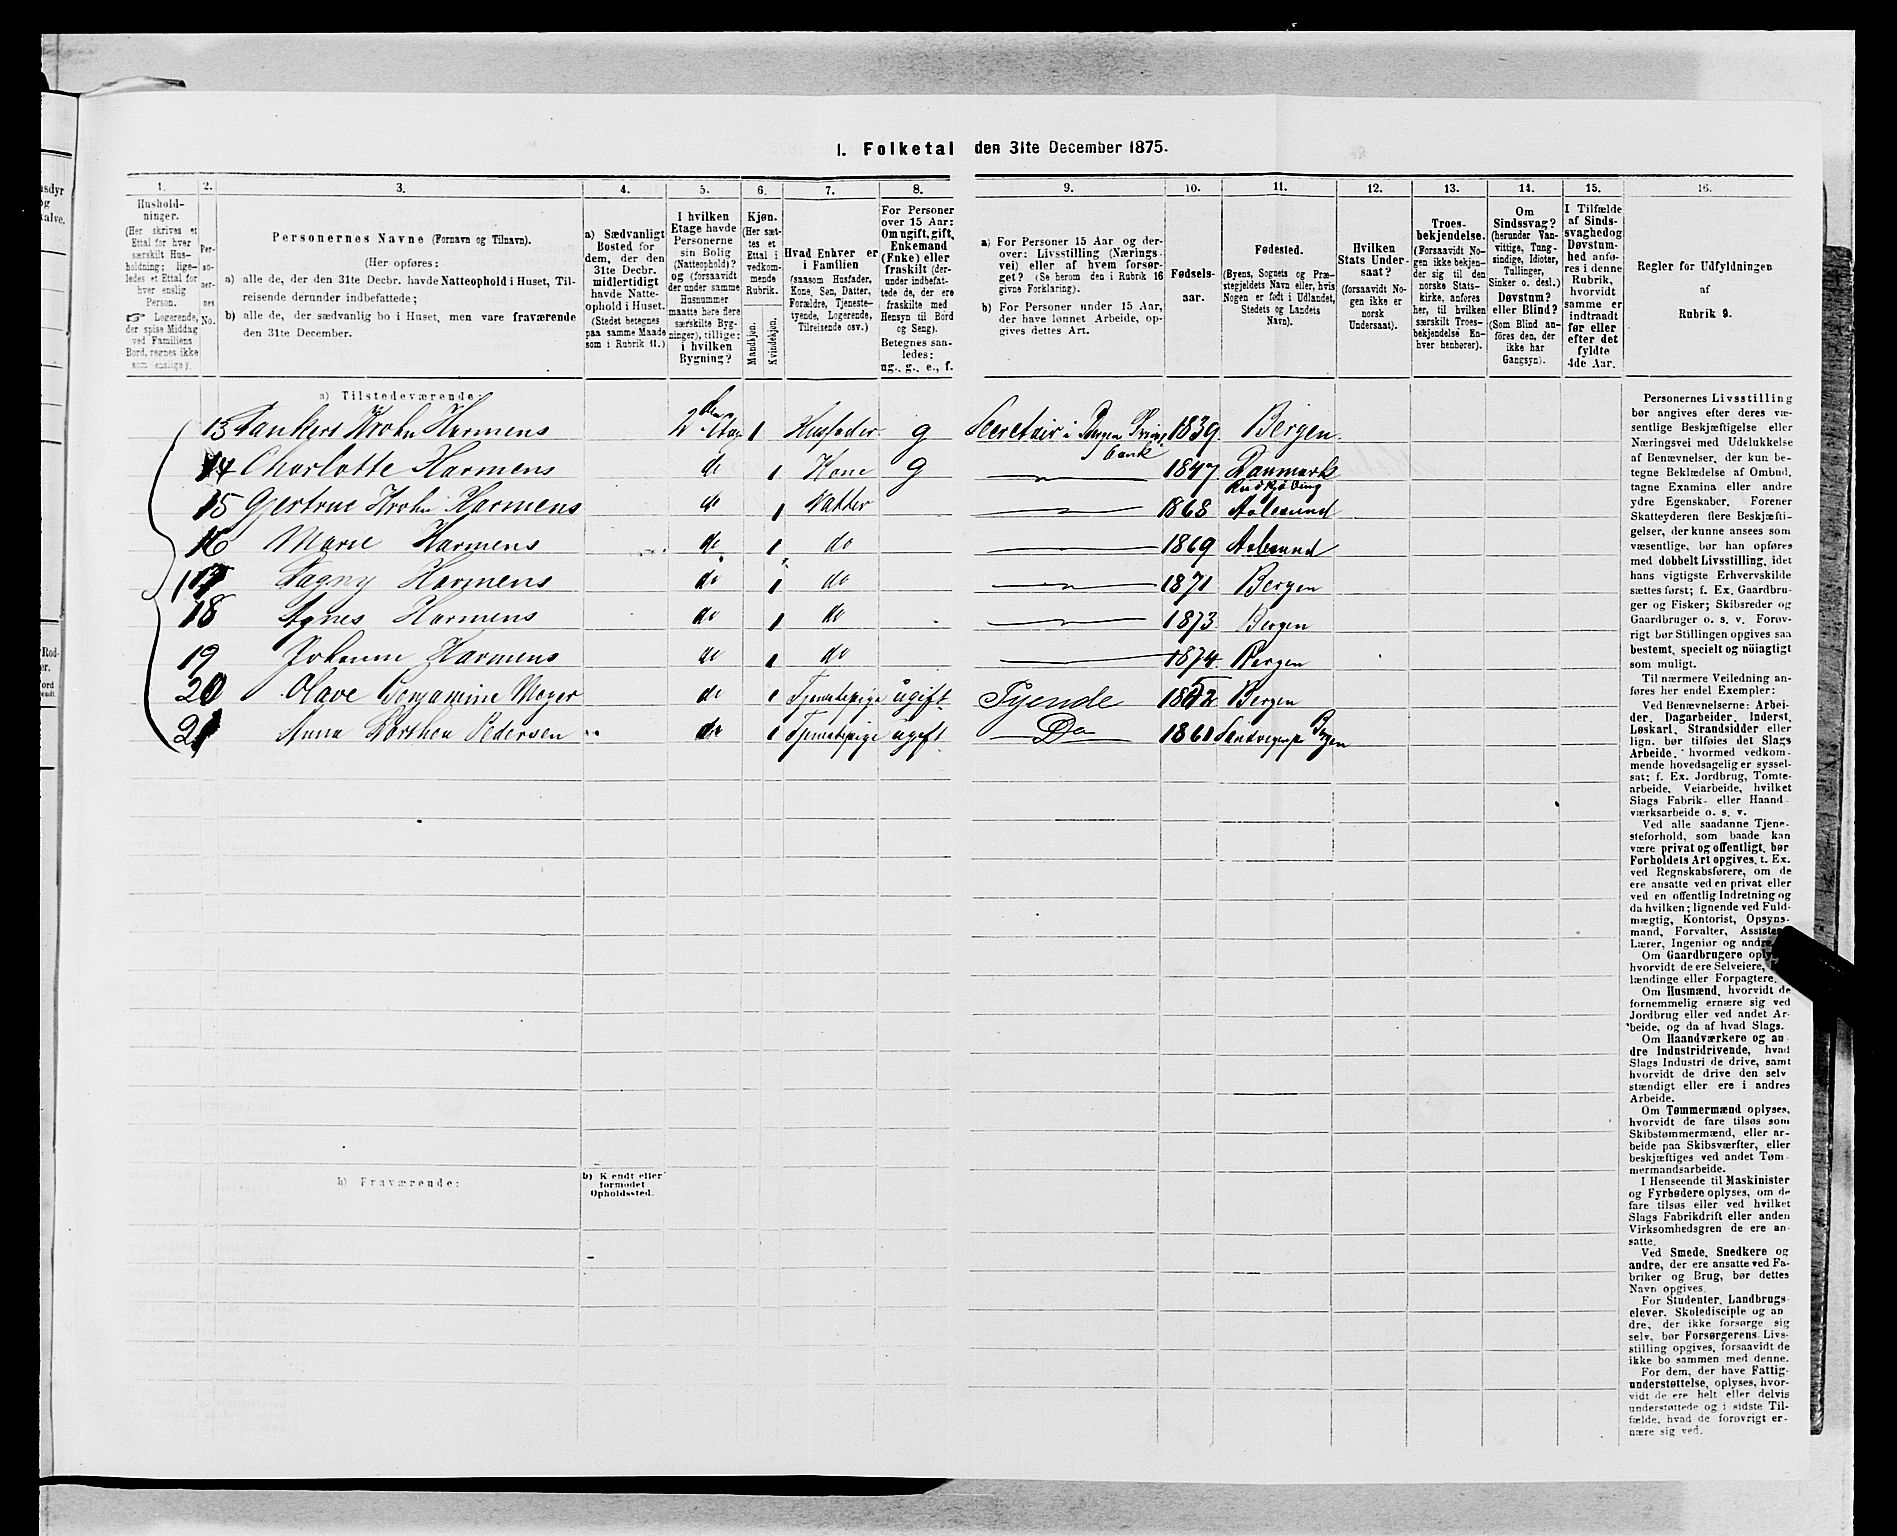 I. Folketal den 31te December 1875.
1. 2. 3. 4. 5. 6. 7. 8. 9. 10. 11. 12. 13. 14. 15. 16.
Hushold-
ninger.
(Her skrives et
Ettal for hver
særskilt Hus-
holdning; lige-
ledes et Ettal for
hver enslig
Person.
☞ Logerende,
der spise Middag
ved Familiens
Bord, regnes ikke
som enslige).
Per-
so-
ner-
nes
No.
Personernes Navne (Fornavn og Tilnavn).
(Her opføres:
a) alle de, der den 31te Decbr. havde Natteophold i Huset, Til-
reisende derunder indbefattede;
b) alle de, der sædvanlig bo i Huset, men vare fraværende
den 31te December.
a) Sædvanligt
Bosted for
dem, der den
31te Decbr.
midlertidigt
havde Natte-
ophold i Huset.
(Stedet betegnes
paa samme Maade
som i Rubrik 11.)
I hvilken
Etage havde
Personerne
sin Bolig
(Natteophold)?
og (forsaavidt
der under samme
Husnummer
maatte høre flere
særskilte Byg-
ninger), tillige:
i hvilken
Bygning?
Kjøn.
(Her sæt-
tes et
Ettal i
vedkom-
mende
Rubrik.
Mandkjøn.
Kvindekjøn.
Hvad Enhver er
i Familien
(saasom Husfader,
Kone, Søn, Datter,
Forældre, Tjeneste-
tyende, Logerende,
Tilreisende osv.)
For Personer
over 15 Aar:
Om ugift, gift,
Enkemand
(Enke) eller
fraskilt (der-
under indbefat-
tede de, der ere
fraskilte med
Hensyn til Bord
og Seng).
Betegnes saa-
ledes:
ug., g., e., f.
a) For Personer 15 Aar og der-
over: Livsstilling (Nærings-
vei) eller af hvem forsør-
get? (Se herom den i Rubrik 16
givne Forklaring).
b) For Personer under 15 Aar,
der have lønnet Arbeide, op-
gives dettes Art.
Fødsels-
aar.
Fødested.
(Byens, Sognets og Præ-
stegjeldets Navn eller, hvis
Nogen er født i Udlandet,
Stedets og Landets
Navn).
Hvilken
Stats Under-
saat?
(forsaavidt No-
gen ikke er
norsk
Undersaat).
Troes-
bekjendelse.
(Forsaavidt No-
gen ikke bekjen-
der sig til den
norske Stats-
kirke, anføres
her, til hvilken
særskilt Troes-
bekjendelse En-
hver henhører).
Om
Sindssvag?
(herunder Van-
vittige, Tung-
sindige, Idioter,
Tullinger,
Sinker o. desl.)
Døvstum?
eller Blind?
(Som Blind an-
føres den, der
ikke har
Gangsyn).
I Tilfælde
af Sinds-
svaghed og
Døvstum-
hed anfø-
res i denne
Rubrik,
hvorvidt
samme er
indtraadt
før eller
efter det
fyldte
4de Aar.
Regler for Udfyldningen
af
Rubrik 9.
a) Tilstedeværende:
13 Dankert Krohn Harmens 2den Etag 1 Husfader g Secretair i Bergen Privatbank 1839 Bergen
14 Charlotte Harmens do 1 Kone g 1847 Danmark Rudkjöbing
15 Gjertrue Krohn Harmens do 1 Datter 1868 Aalesund
16 Marie Harmens do 1 do 1869 Aalesund
17 Dagny Harmens do 1 do 1871 Bergen
18 Agnes Harmens do 1 do 1873 Bergen
19 Johanne Harmens do 1 do 1874 Bergen
20 Olave Benjamine Meyer do 1 Tjenstepige ugift Tyende 1852 Bergen
21 Anna Dorthea Pedersen do 1 Tjenstepige ugift Do 1861 Bergen
b) Fraværende:
b) Kjendt eller
formodet
Opholdssted.
Personernes Livsstilling
bør angives efter deres væ-
sentlige Beskjæftigelse eller
Næringsvei med Udelukkelse
af Benævnelser, der kun be-
tegne Beklædelse af Ombud,
tagne Examina eller andre
ydre Egenskaber. Forener
Skatteyderen flere Beskjæfti-
gelser, der kunne ansees som
væsentlige, bør han opføres
med dobbelt Livsstilling, idet
hans vigtigste Erhvervskilde
sættes først; f. Ex. Gaardbru-
ger og Fisker; Skibsreder og
Gaardbruger o. s. v. Forøv-
rigt bør Stillingen opgives saa
bestemt, specielt og nöiagtigt
som muligt.
Til nærmere Veiledning an-
føres her endel Exempler:
Ved Benævnelserne: Arbei-
der, Dagarbeider, Inderst,
Løskarl, Strandsidder eller
lign. bør tilføies det Slags
Arbeide, hvormed vedkom-
mende hovedsagelig er syssel-
sat; f. Ex. Jordbrug, Tomte-
arbeide, Veiarbeide, hvilket
Slags Fabrik- eller Haand-
værksarbeide o. s. v.
Ved alle saadanne Tjene-
steforhold, som baade kan
være privat og offentligt, bør
Forholdets Art opgives, t. Ex.
ved Regnskabsførere, om de
ere ansatte ved en privat eller
ved en offentlig Indretning og
da hvilken; lignende ved Fuld-
mægtig, Kontorist, Opsyns-
mand, Forvalter, Assistent,
Lærer, Ingeniør og andre.
Om Gaardbrugere oplyses,
hvorvidt de ere Selveiere,
lændinge eller Forpagtere.
Om Husmænd, hvorvidt de
fornemmelig ernære sig ved
Jordbrug eller ved andet Ar-
beide, og da af hvad Slags.
Om Haandværkere og an-
dre Industridrivende, hvad
Slags Industri de drive, samt
hvorvidt de drive den selv-
stændigt eller ere i andres
Arbeide.
Om Tømmermænd oplyses,
hvorvidt de fare tilsøs som
Skibstømmermænd, eller ar-
beide paa Skibsværfter, eller
beskjæftiges ved andet Tøm-
mermandsarbeide.
I Henseende til Maskinister
og Fyrbødere oplyses, om de
fare tilsøs eller ved hvilket
Slags Fabrikdrift eller anden
Virksomhedsgren de ere an-
satte.
Ved Smede, Snedkere og
andre, der ere ansatte ved Fa-
briker og Brug, bør dettes
Navn opgives.
For Studenter, Landbrugs-
elever, Skoledisciple og an-
dre, der ikke forsørge sig
selv, bør Forsørgerens Livs-
stilling opgives, forsaavidt de
ikke bo sammen med denne.
For dem, der have Fattig-
understøttelse, oplyses, hvor-
vidt de ere helt eller delvis
understøttede og i sidste Til-
fælde, hvad de forøvrigt er-
nære sig ved.